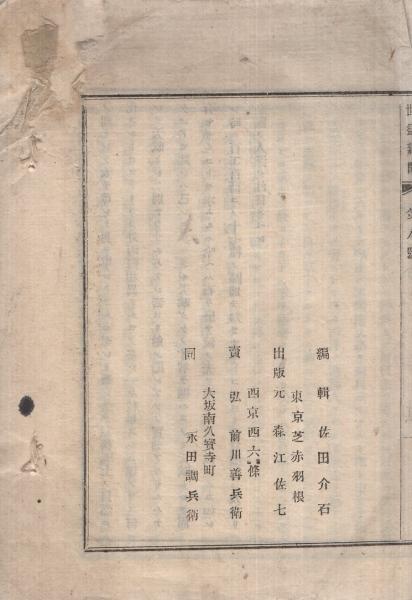 世益新聞 第八號
編輯 佐田介石
東京芝赤羽根
出版元 森江佐七
西京西六條
賣弘 前川善兵衛
大坂南久寳寺町
同 永田調兵衛